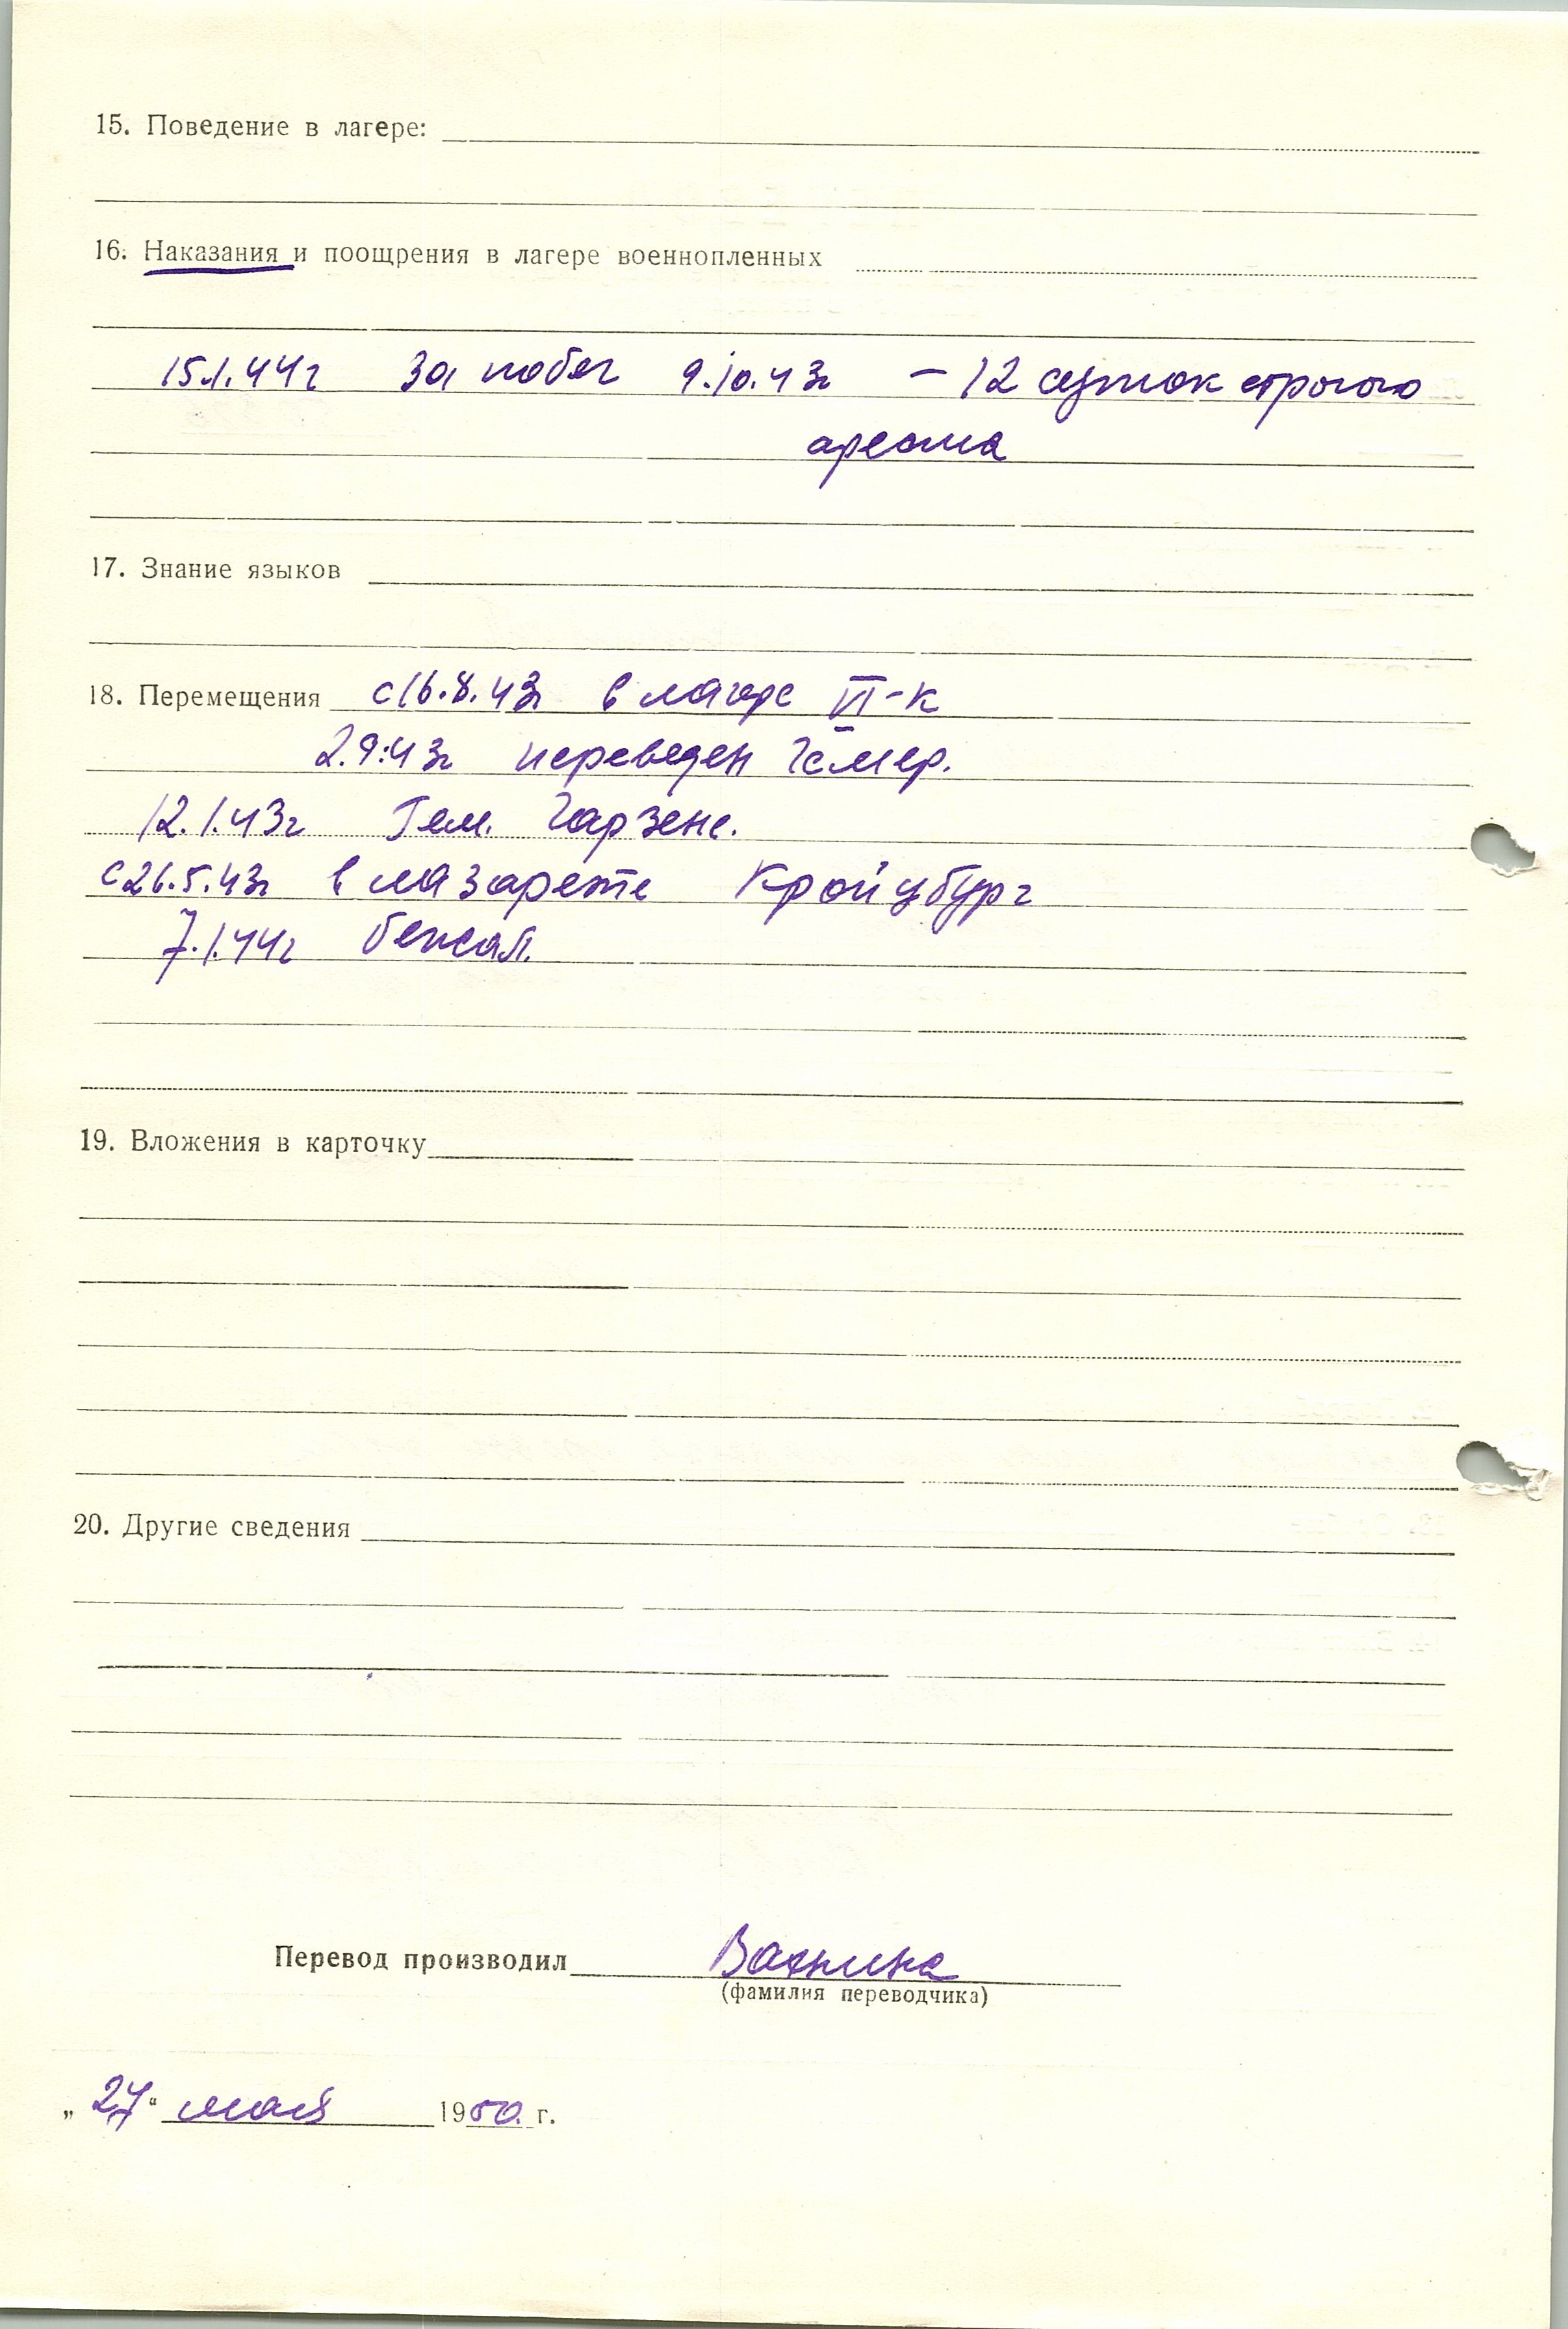 15. Поведение в лагере:
16. Наказания и поощрения в лагере военнопленных
15.1.44г за побег 9.10.43г – 12 суток строгого
ареста
17. Знание языков
18. Перемещения с 16.8.43г в лагере VI-К
2.9.43г переведен Гемер.
12.1.43г Гем. Гарзене.
с 26.5.43г в лазарете Кройцбург
7.1.44г бенсал.
19. Вложения в карточку
20. Другие сведения
Перевод производил Вахнина
(фамилия переводчика)
„ 27 “ мая 1950. г.